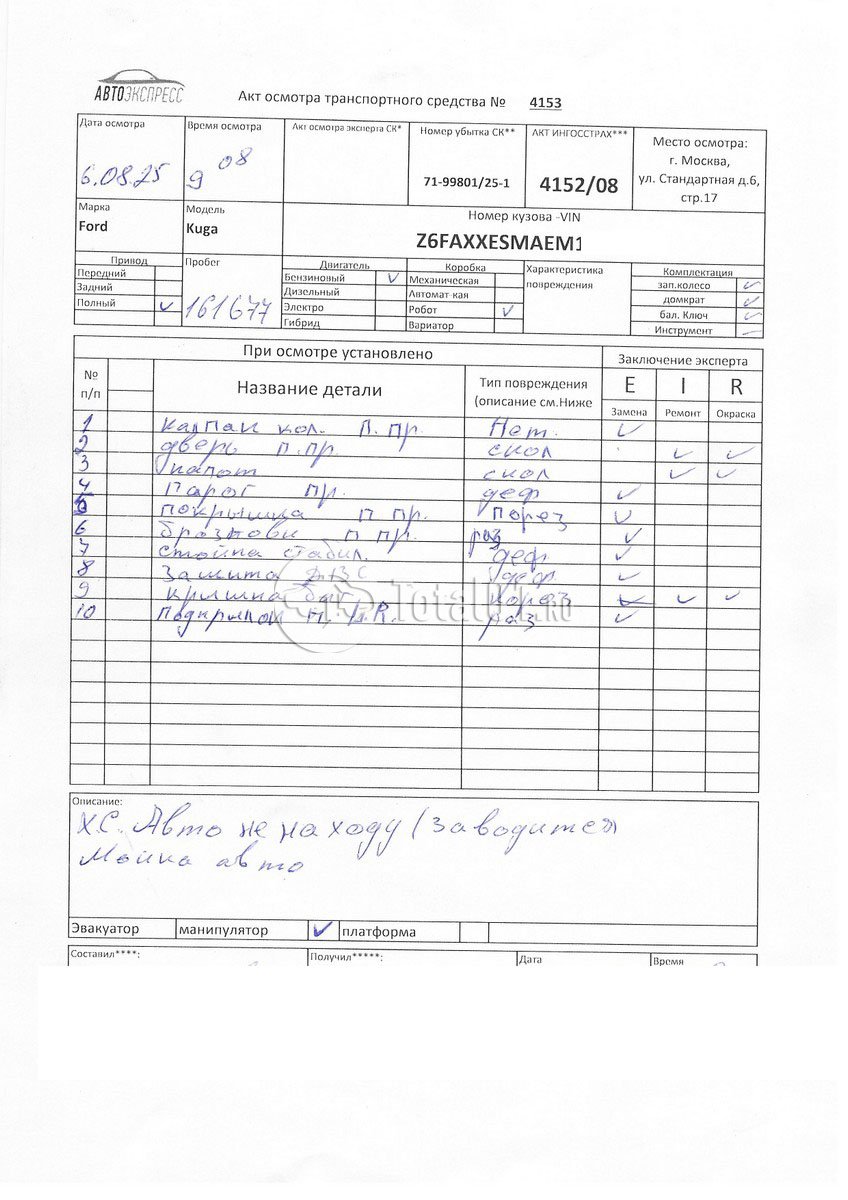 АВТОЭКСПРЕСС
Акт осмотра транспортного средства № 4153
Дата осмотра
6.08.25
Время осмотра
9 08
Акт осмотра эксперта СК*
Номер убытка СК**
71-99801/25-1
АКТ ИНГОССТРАХ***
4152/08
Место осмотра:
г. Москва,
ул. Стандартная д.6,
стр.17
Марка
Ford
Модель
Kuga
Номер кузова -VIN
Z6FAXXESMAEM1
Привод
Передний
Задний
Полный ✓
Пробег
161677
Двигатель
Бензиновый ✓
Дизельный
Электро
Гибрид
Коробка
Механическая
Автомат-кая
Робот ✓
Вариатор
Характеристика
повреждения
Комплектация
зап.колесо ✓
домкрат ✓
бал. Ключ ✓
Инструмент –
При осмотре установлено
Заключение эксперта
№
п/п
Название детали
Тип повреждения
(описание см.Ниже
E I R
Замена Ремонт Окраска
1 Калпак кол. П.пр. Нет. ✓
2 дверь п.пр. скол ✓ ✓
3 капот скол ✓ ✓
4 Парог пр. деф ✓
5 покрышка п пр. порез ✓
6 п пр. раз ✓
7 стойка стабил. деф ✓
8 Защита ДВС деф ✓
9 крышка баг порез ✓ ✓ ✓
10 Подкрылок раз ✓
Total01.RU
Описание:
Х.С. Авто не на ходу (заводится
Мойка авто
Эвакуатор манипулятор ✓ платформа
Составил****: Получил*****: Дата Время